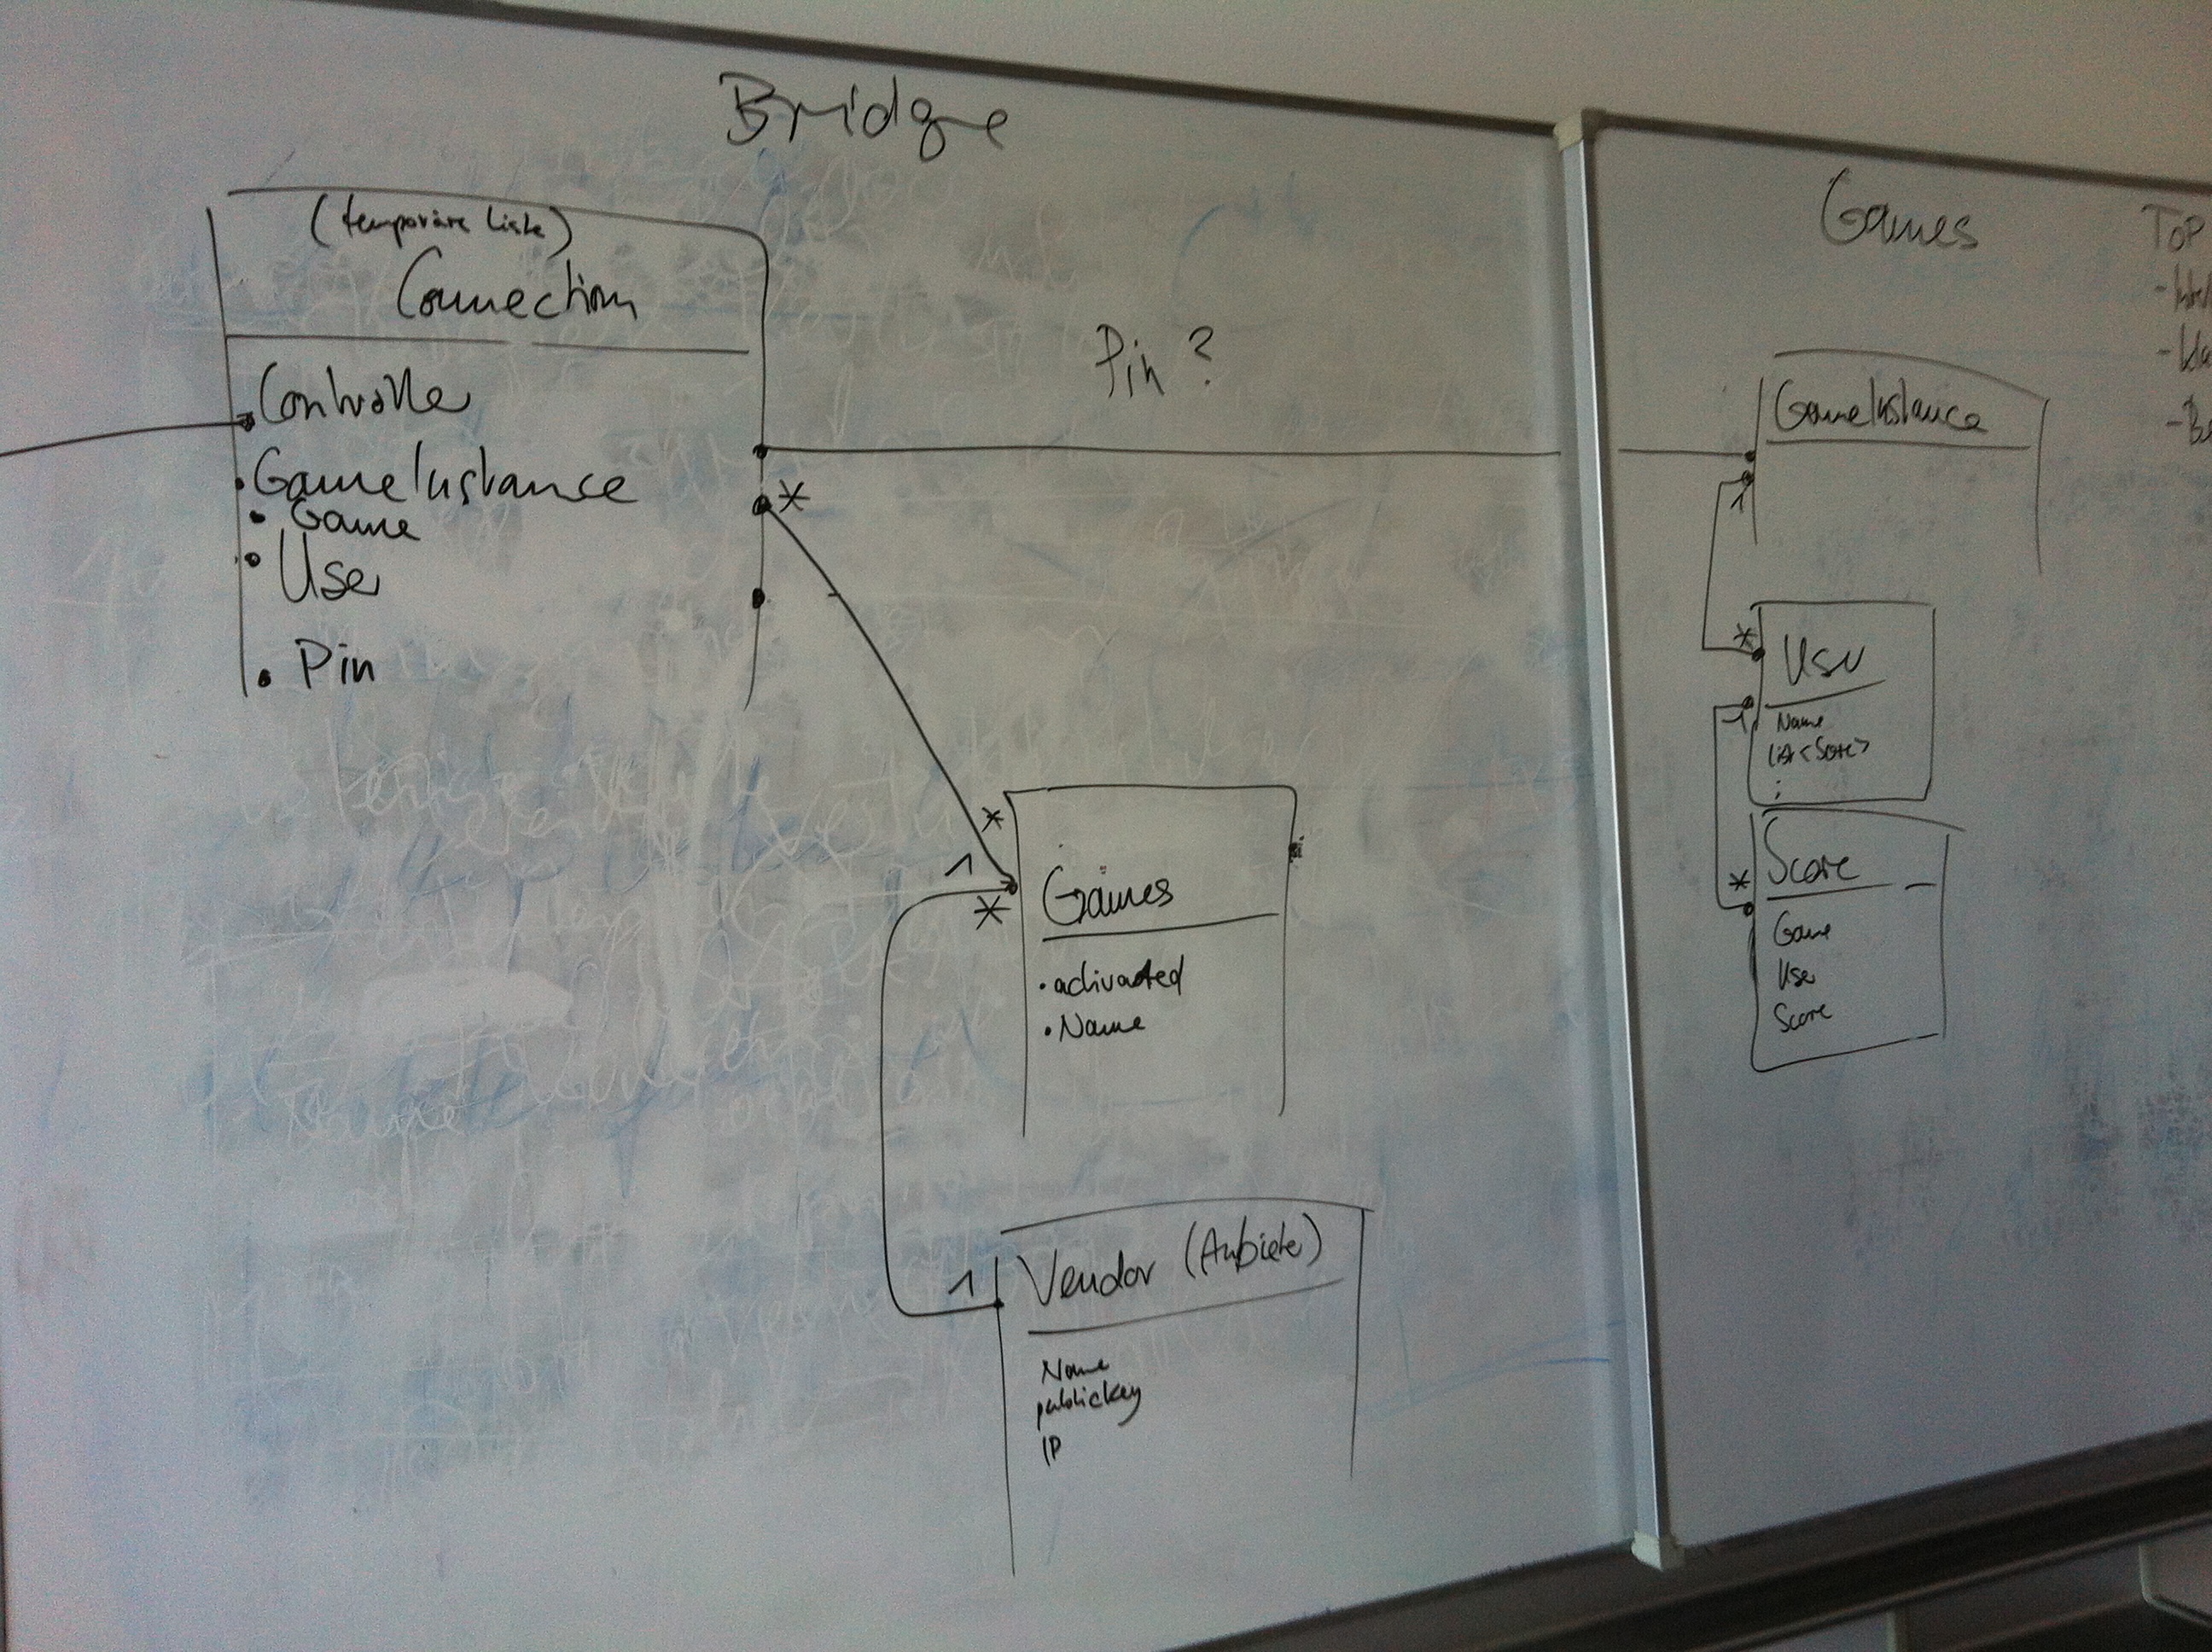 Bridge
(temporäre Liste)
Connection
Controller
GameInstance
Game
User
Pin
Pin ?
*
*
1
*
Games
• activated
• Name
1
Vendor (Anbieter)
Name
publickey
IP
Games
GameInstance
1
*
User
1
Name
List<Score>
:
*
Score
Game
User
Score
TOP